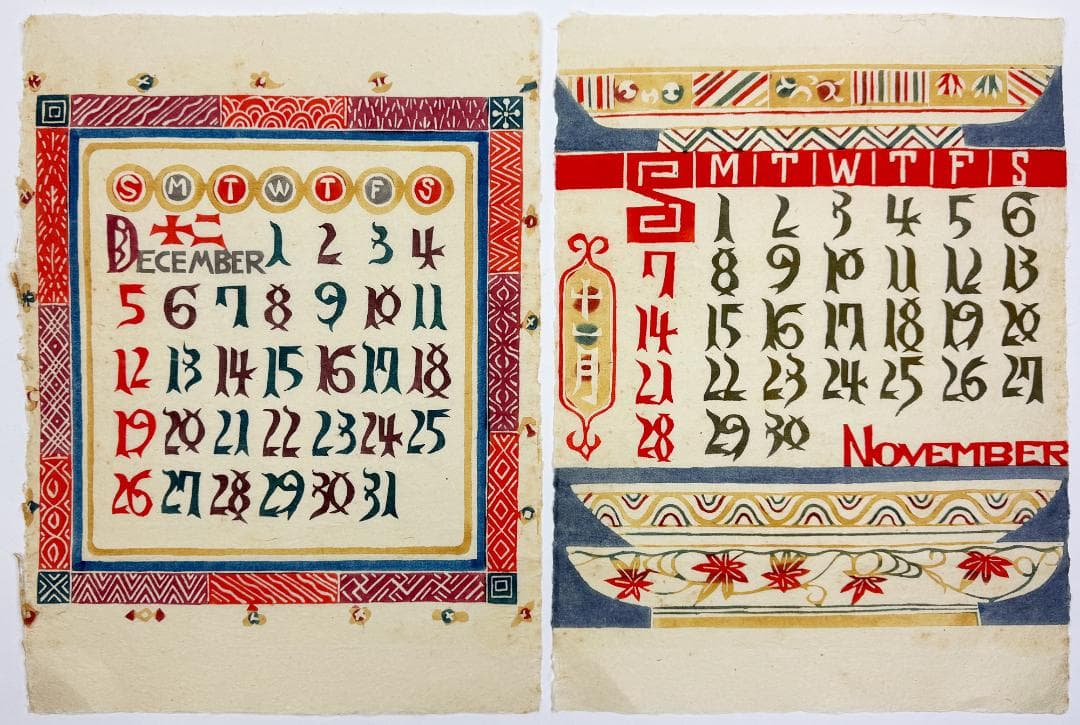 S M T W T F S
十二
DECEMBER 1 2 3 4
5 6 7 8 9 10 11
12 13 14 15 16 17 18
19 20 21 22 23 24 25
26 27 28 29 30 31
S M T W T F S
1 2 3 4 5 6
7 8 9 10 11 12 13
14 15 16 17 18 19 20
21 22 23 24 25 26 27
28 29 30
十一月
NOVEMBER